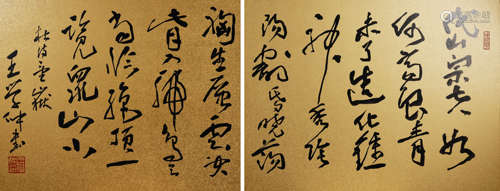 岱宗夫如
何齊魯青
未了造化鍾
神秀陰
陽割昏曉蕩
胸生层雲决
眥入歸鳥會
當凌絶頂一
覽眾山小
杜甫望嶽
王学仲書